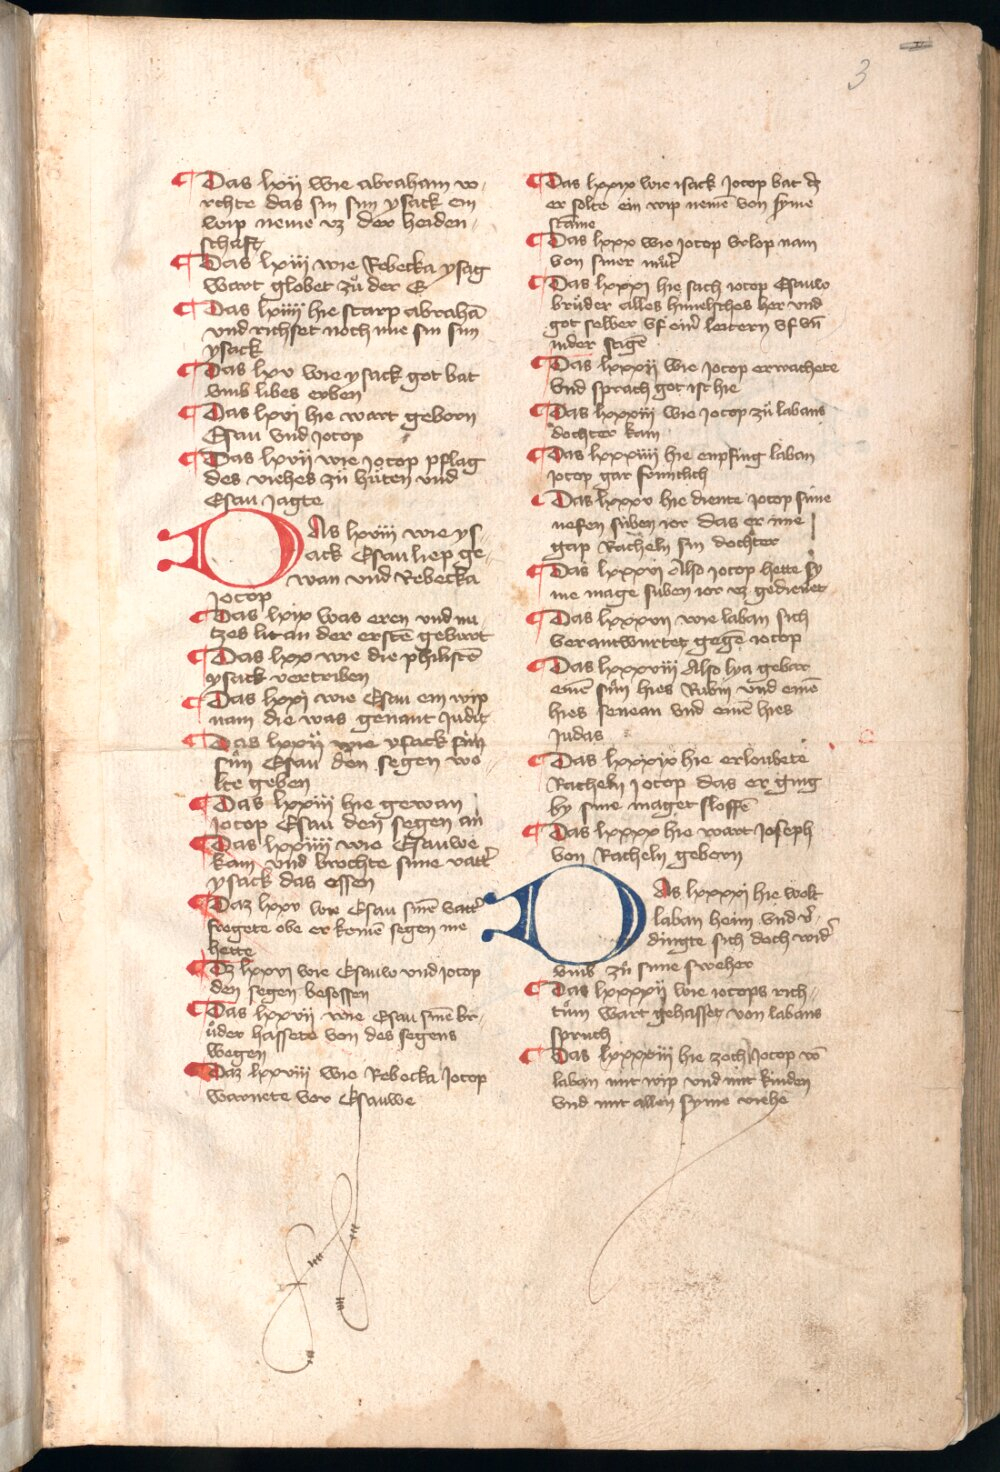 3
Das lxij wie abraham vo-
rchte das sin sun ysack ein
wip neme vz der heiden-
schaft
Das lxiij wie Rebecka ysag
wart globet zů der E
Das lxiiij hie starp abrahā
vnd richset noch ime sin sun
ysack
Das lxv wie ysack got bat
vmb libes erben
Das lxvi hie wart geborn
Esau vnd jocop
Das lxvij wie jocop pflag
des viehes zů hůten vnd
Esau jagte
DAs lxviij wie ys-
ack Esau liep ge-
wan vnd Rebecka
jocop
Das lxix was eren vnd nu-
tzes lit an der erstē geburt
Das lxx wie die philistē
ysack vertriben
Das lxxi wie Esau ein wip
nam die was genant Judit
Das lxxij wie ysack sin
sůn Esau den segen wo-
lte geben
Das lxxiij hie gewan
jocop Esau den segen an
Das lxxiiij wie Esauwe
kam vnd brochte sime vattͤ
ysack das essen
Daz lxxv wie Esau sinē vattͤ
fregete obe er keinē segen me
hette
Dz lxxvi wie Esauw vnd jocop
den segen besossen
Das lxxvij wie Esau sinē br-
ůder hassete von des segens
wegen
Daz lxxviij wie Rebecka jocop
warnete vor Esauwe
Das lxxix wie isack jocop bat dz
er solte ein wip nemē von syme
stāme
Das lxxx wie jocop vrlop nam
von siner můt͛
Das lxxxi hie sach jocop Esauw
brůder alles himelsches her vnd
got selber vf ein͛ leitern vf vn̄
nider stigē
Das lxxxij wie jocop erwachete
vnd sprach got ist hie
Das lxxxiij wie jocop zů labans
dochter kam
Das lxxxiiij hie enpfing laban
jocop gar frúntlich
Das lxxxv hie diente jocop sime
nefen súben jor das er ime
gap Racheln sin dochter
Das lxxxvi Also jocop hette sy
me mage súben jor vz gedienet
Das lxxxvij wie laban sich
verantwurtet gegē jocop
Das lxxxviij Also lya gebar
einē sůn hies Rubin vnd einē
hies semean vnd einē hies
Judas
Das lxxxix hie erloubete
Racheln jocop das er ging
by sine maget sloffē
Das lxxxx hie wart Joseph
von Racheln geborn
DAs lxxxxi hie wolt
laban heim vnd v͛-
dingte sich doch wid͛
vmb zů sime sweher
Das lxxxxij wie jocops rich-
tům wart gehasset von labans
spruch
Das lxxxxiij hie zoch Jocop vō
laban mit wip vnd mit kinden
vnd mit allen syme viehe